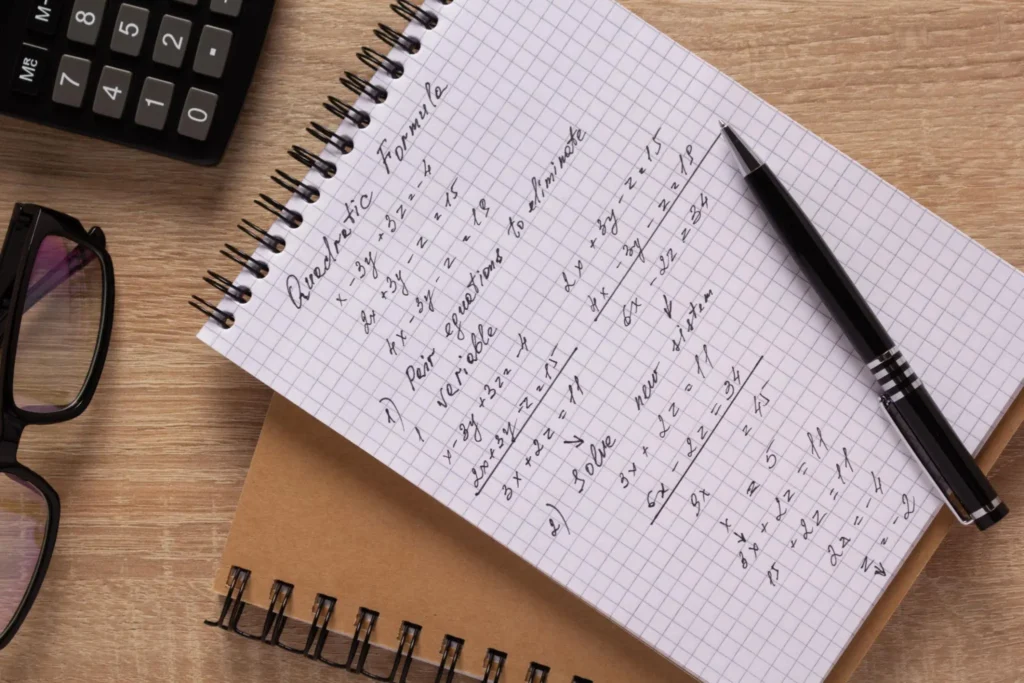 Quadratic Formula
x - 3y + 3z = -4
2x + 3y - z = 15
4x - 3y - z = 19
Pair equations to eliminate
1) 1 variable
x - 3y + 3z = -4
2x + 3y - z = 15
3x + 2z = 11
2x + 3y - z = 15
4x - 3y - z = 19
6x - 2z = 34
2) Solve new sistem
3x + 2z = 11
6x - 2z = 34
9x = 45
x = 5
3x + 2z = 11
15 + 2z = 11
2z = -4
z = -2
M-
8
5
2
.
MRC
7
4
1
0